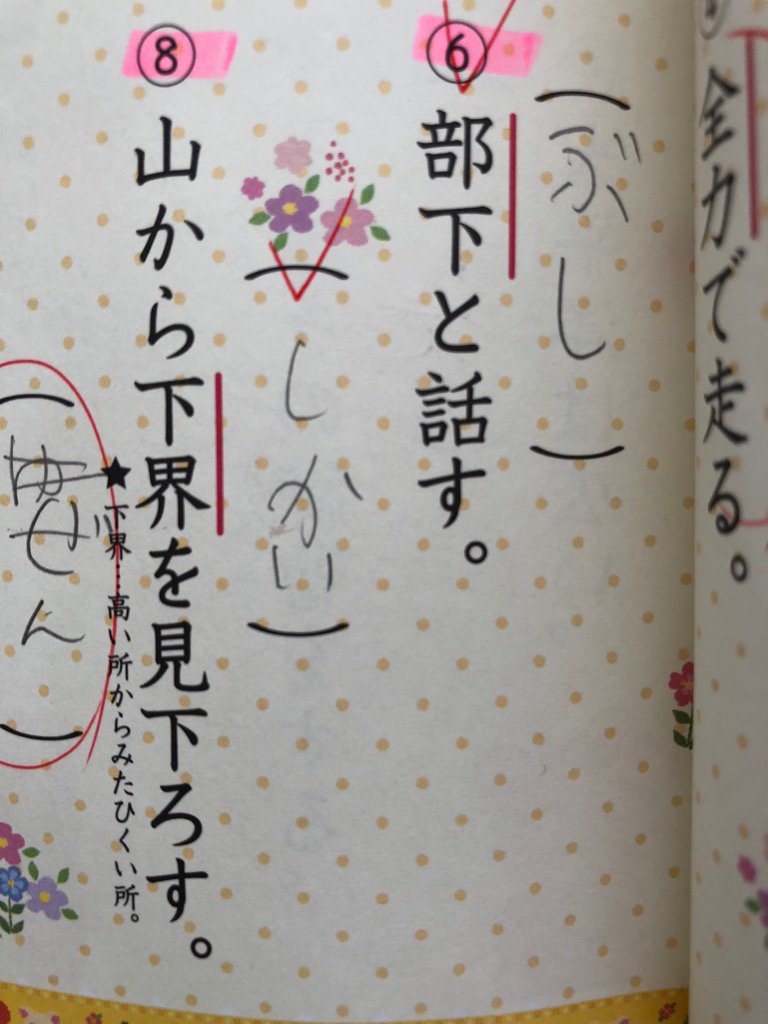 全力で走る。
(ぶし)
⑥ 部下と話す。
(しかい)
⑧ 山から下界を見下ろす。
★下界…高い所からみたひくい所。
(ゆぜん)